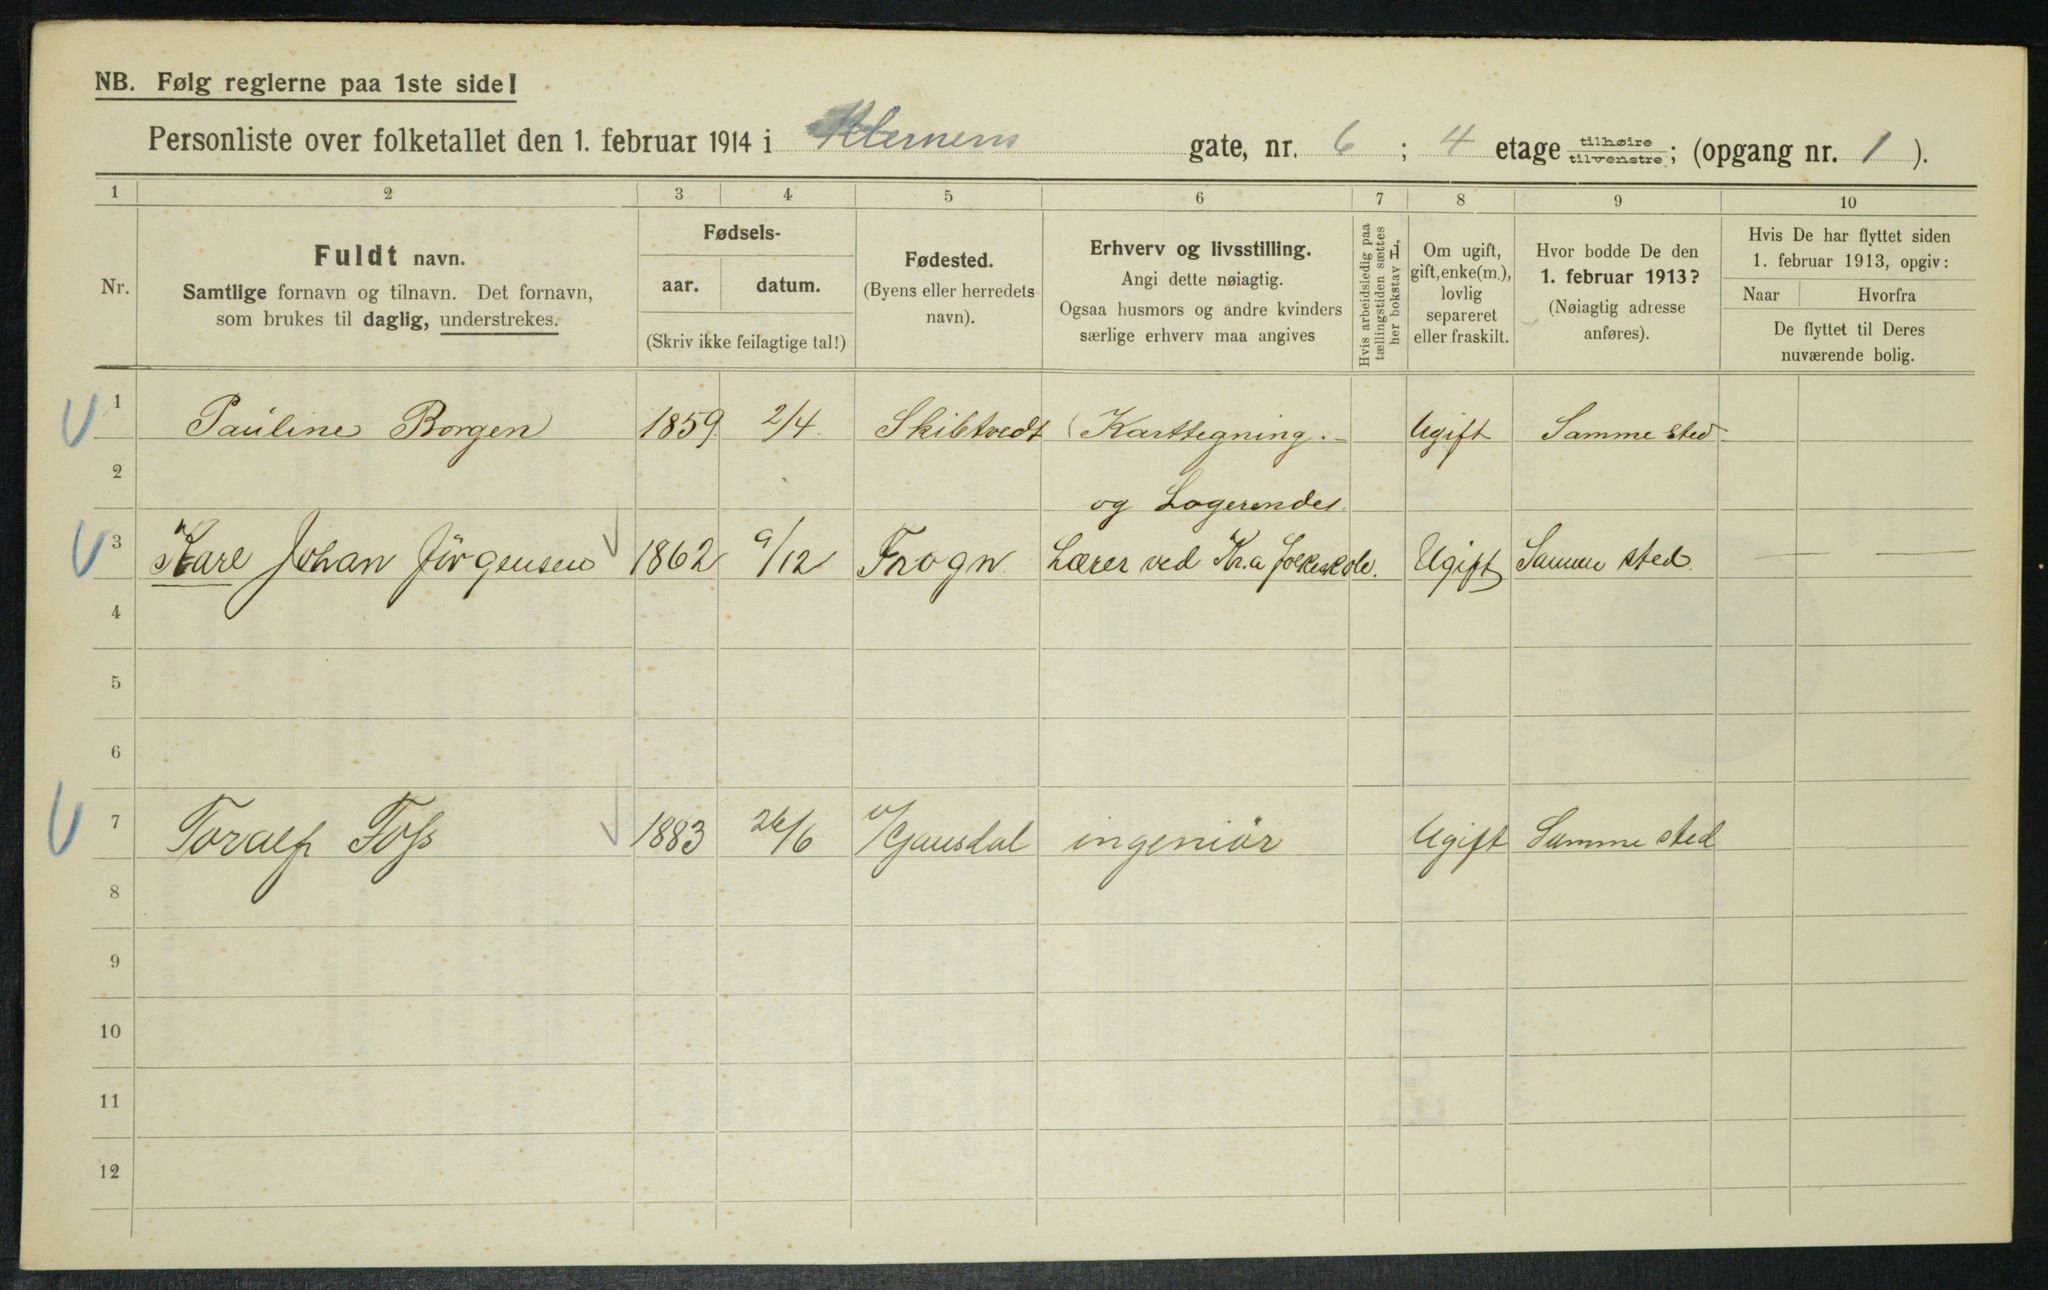 NB. Følg reglerne paa 1ste side!
Personliste over folketallet den 1. februar 1914 i Klemens gate, nr. 6 ; 4 etage tilhøire tilvenstre ; (opgang nr. 1 ).
1 2 3 4 5 6 7 8 9 10
Nr.
Fuldt navn.
Samtlige fornavn og tilnavn. Det fornavn,
som brukes til daglig, understrekes.
Fødsels-
aar. datum.
(Skriv ikke feilagtige tal!)
Fødested.
(Byens eller herredets
navn).
Erhverv og livsstilling.
Angi dette nøiagtig.
Ogsaa husmors og andre kvinders
særlige erhverv maa angives
Hvis arbeidsledig paa
tællingstiden sættes
her bokstav L.
Om ugift,
gift, enke(m.),
lovlig
separeret
eller fraskilt.
Hvor bodde De den
1. februar 1913?
(Nøiagtig adresse
anføres).
Hvis De har flyttet siden
1. februar 1913, opgiv:
Naar Hvorfra
De flyttet til Deres
nuværende bolig.
1 Pauline Borgen 1859. 2/4. Skibtvedt Karttegning. Ugift Samme sted
2 og Logerendes.
3 Karl Johan Jörgensen 1862 9/12 Frogn Lærer ved Kr.a folkeskole. Ugift Samme sted.
4
5
6
7 Toralf Foss 1883 26/6 V/Gausdal ingeniör Ugift Samme sted
8
9
10
11
12